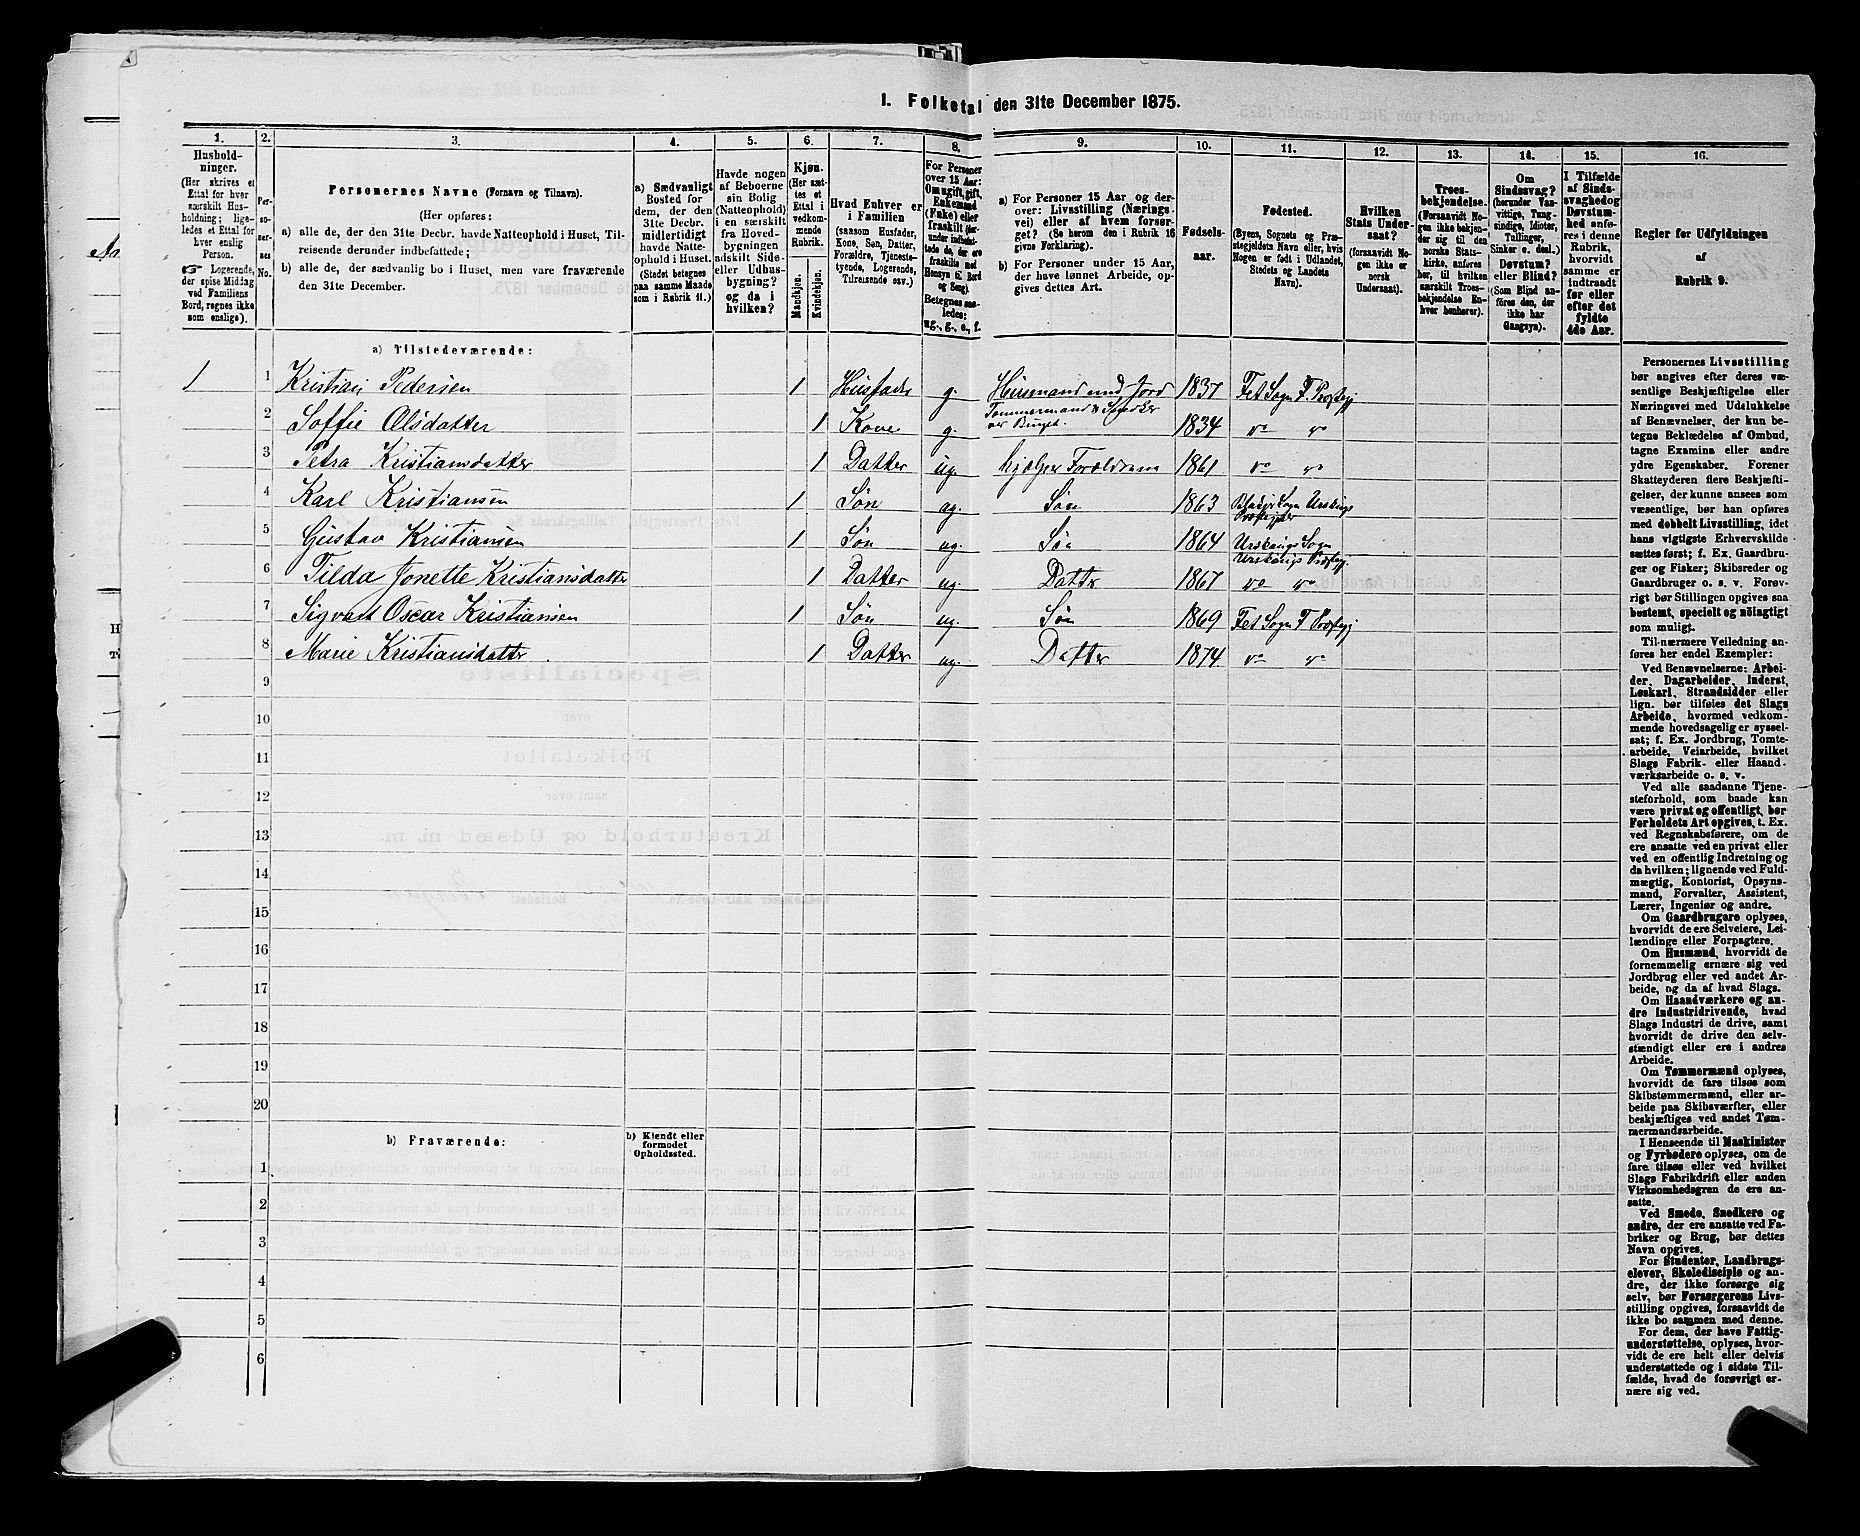 1. Folketal den 31te December 1875.
1. 2. 3. 4. 5. 6. 7. 8. 9. 10. 11. 12. 13. 14. 15. 16.
Husholdninger.
(Her skrives et
Ettal for hver
særskilt Hus-
holdning; lige-
ledes et Ettal for
hver enslig
Person.
Logerende,
der spise Middag
ved Familiens
Bord, regnes ikke
som enslige).
Per-
so-
ner-
nes
No.
Personernes Navne (Fornavn og Tilnavn).
(Her opføres:
a) alle de, der den 31te Decbr. havde Natteophold i Huset, Til-
reisende derunder indbefattede;
b) alle de, der sædvanlig bo i Huset, men vare fraværende
den 31te December.
a) Sædvanligt
Bosted for
dem, der den
31te Decbr.
midlertidigt
havde Natte-
ophold i Huset.
(Stedet betegnes
paa samme Maade
som i Rubrik 11.)
Havde nogen
af Beboerne
sin Bolig
(Natteophold)
i en særskilt
fra Hoved-
bygningen
adskilt Side-
eller Udhus-
bygning?
og da i
hvilken?
Kjøn.
(Her sæt-
tes et
Ettal i
vedkom-
mende
Rubrik.
Mandkjøn.
Kvindekjøn.
Hvad Enhver er
i Familien
(saasom Husfader,
Kone, Søn, Datter,
Forældre, Tjeneste-
tyende, Logerende,
Tilreisende osv.)
For Personer
over 15 Aar:
Om ugift, gift,
Enkemand
(Enke) eller
fraskilt
Betegnes saa-
ledes:
ug., g., e., f.
a) For Personer 15 Aar og der-
over: Livsstilling (Nærings-
vei) eller af hvem forsør-
get? (Se herom den i Rubrik 16
givne Forklaring).
b) For Personer under 15 Aar,
der have lønnet Arbeide, op-
gives dettes Art.
Fødsels-
aar.
Fødested.
(Byens, Sognets og Præ-
stegjeldets Navn eller, hvis
Nogen er født i Udlandet,
Stedets og Landets
Navn).
Hvilken
Stats Under-
saat?
(forsaavidt No-
gen ikke er
norsk
Undersaat).
Troes-
bekjendelse.
(Forsaavidt No-
gen ikke bekjen-
der sig til den
norske Stats-
kirke, anføres
her, til hvilken
særskilt Troes-
bekjendelse En-
hver henhører).
Om
Sindssvag?
(herunder Van-
vittige, Tung-
sindige, Idioter,
Tullinger,
Sinker o. desl.)
Døvstum?
eller Blind?
(Som Blind an-
føres den, der
ikke har
Gangsyn).
I Tilfælde
af Sinds-
svaghed og
Døvstum-
hed anfø-
res i denne
Rubrik,
hvorvidt
samme er
indtraadt
før eller
efter det
fyldte
4de Aar.
Regler for Udfyldningen
af
Rubrik 9.
a) Tilstedeværende:
1 1 Kristian Pedersen 1 Husfader g. Husmand med Jord 1837 Fet Sogn F Præstegj
Tømmermand & Snedker
2 Soffie Olsdatter 1 Kone g. 1834 do do
3 Petra Kristiansdatter 1 Datter ug. hjælper Forældrene 1861 do do
4 Karl Kristiansen 1 Søn ug. Søn 1863 Sogn Urskogs
5 Gustav Kristiansen 1 Søn ug. Søn 1864 Urskougs Sogn
Urskougs Præstegj
6 Tilda Jonette Kristiansdatter 1 Datter ug. Datter 1867 do do
7 Sigvart Oscar Kristiansen 1 Søn ug. Søn 1869 Fet Sogn F Præstegj
8 Marie Kristiansdatter 1 Datter ug. Datter 1874 do do
9
10
11
12
13
14
15
16
17
18
19
20
b) Fraværende:
b) Kjendt eller
formodet
Opholdssted.
1
2
3
4
5
6
Personernes Livsstilling
bør angives efter deres væ-
sentlige Beskjæftigelse eller
Næringsvei med Udelukkelse
af Benævnelser, der kun be-
tegne Beklædelse af Ombud,
tagne Examina eller andre
ydre Egenskaber. Forener
Skatteyderen flere Beskjæfti-
gelser, der kunne ansees som
væsentlige, bør han opføres
med dobbelt Livsstilling, idet
hans vigtigste Erhvervskilde
sættes først; f. Ex. Gaardbru-
ger og Fisker; Skibsreder og
Gaardbruger o. s. v. Forøv-
rigt bør Stillingen opgives saa
bestemt, specielt og nöiagtigt
som muligt.
Til nærmere Veiledning an-
føres her endel Exempler:
Ved Benævnelserne: Arbei-
der, Dagarbeider, Inderst,
Løskarl, Strandsidder eller
lign. bør tilføies det Slags
Arbeide, hvormed vedkom-
mende hovedsagelig er syssel-
sat; f. Ex. Jordbrug, Tomte-
arbeide, Veiarbeide, hvilket
Slags Fabrik- eller Haand-
værksarbeide o. s. v.
Ved alle saadanne Tjene-
steforhold, som baade kan
være privat og offentligt, bør
Forholdets Art opgives, f. Ex.
ved Regnskabsførere, om de
ere ansatte ved en privat eller
ved en offentlig Indretning og
da hvilken; lignende ved Fuld-
mægtig, Kontorist, Opsyns-
mand, Forvalter, Assistent,
Lærer, Ingeniør og andre.
Om Gaardbrugere oplyses,
hvorvidt de ere Selveiere, Lei-
lændinge eller Forpagtere.
Om Husmænd, hvorvidt de
fornemmelig ernære sig ved
Jordbrug eller ved andet Ar-
beide, og da af hvad Slags.
Om Haandværkere og an-
dre Industridrivende, hvad
Slags Industri de drive, samt
hvorvidt de drive den selv-
stændigt eller ere i andres
Arbeide.
Om Tømmermænd oplyses,
hvorvidt de fare tilsøs som
Skibstømmermænd, eller ar-
beide paa Skibsværfter, eller
beskjæftiges ved andet Tøm-
mermandsarbeide.
I Henseende til Maskinister
og Fyrbødere oplyses, om de
fare tilsøs eller ved hvilket
Slags Fabrikdrift eller anden
Virksomhedsgren de ere an-
satte.
Ved Smede, Snedkere og
andre, der ere ansatte ved Fa-
briker og Brug, bør dettes
Navn opgives.
For Studenter, Landbrugs-
elever, Skoledisciple og an-
dre, der ikke forsørge sig
selv, bør Forsørgerens Livs-
stilling opgives, forsaavidt de
ikke bo sammen med denne.
For dem, der have Fattig-
understøttelse, oplyses, hvor-
vidt de ere helt eller delvis
understøttede og i sidste Til-
fælde, hvad de forøvrigt er-
nære sig ved.